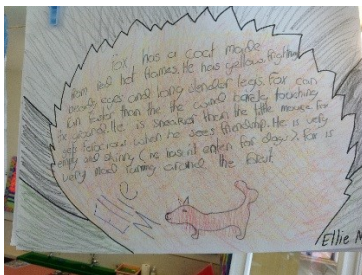 Fox has a coat made
from red hot flames. He has yellow, frightning
beady eyes and long slender legs. Fox can
run faster than the wind barely touching
the ground. He is sneaker than the little mouse. Fox
gets ferocious when he sees friendship. He is very
empty and skinny (he hasn't enten for days). Fox is
very mad running around the
Ellie M